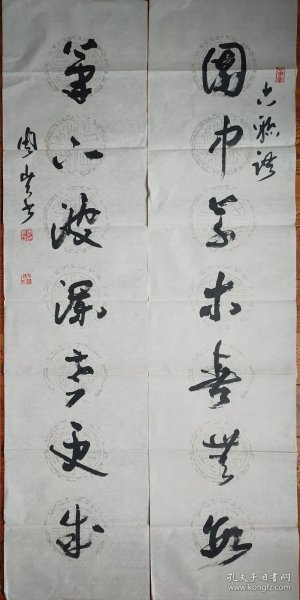 園中草木春無數
筆下波瀾老更成
孔夫子旧书网